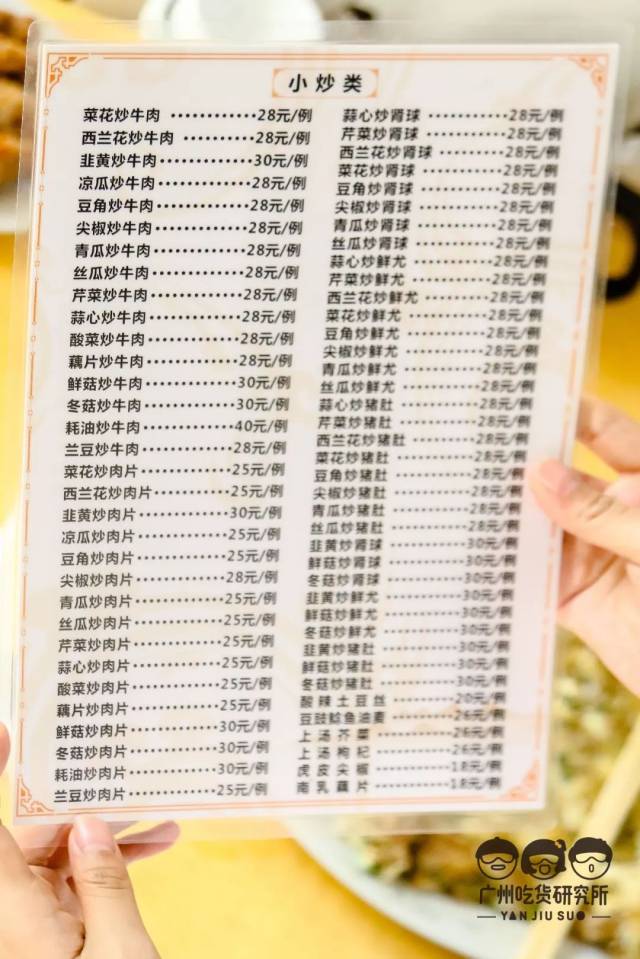 小炒类
菜花炒牛肉 ············28元/例
西兰花炒牛肉 ··········28元/例
韭黄炒牛肉·············30元/例
凉瓜炒牛肉·············28元/例
豆角炒牛肉·············28元/例
尖椒炒牛肉·············28元/例
青瓜炒牛肉·············28元/例
丝瓜炒牛肉·············28元/例
芹菜炒牛肉·············28元/例
蒜心炒牛肉·············28元/例
酸菜炒牛肉·············28元/例
藕片炒牛肉·············28元/例
鲜菇炒牛肉·············30元/例
冬菇炒牛肉·············30元/例
耗油炒牛肉·············40元/例
兰豆炒牛肉·············28元/例
菜花炒肉片·············25元/例
西兰花炒肉片···········25元/例
韭黄炒肉片·············30元/例
凉瓜炒肉片·············25元/例
豆角炒肉片·············25元/例
尖椒炒肉片·············28元/例
青瓜炒肉片·············25元/例
丝瓜炒肉片·············25元/例
芹菜炒肉片·············25元/例
蒜心炒肉片·············25元/例
酸菜炒肉片·············25元/例
藕片炒肉片·············25元/例
鲜菇炒肉片·············30元/例
冬菇炒肉片·············30元/例
耗油炒肉片·············30元/例
兰豆炒肉片·············25元/例
蒜心炒肾球 ············28元/例
芹菜炒肾球 ············28元/例
西兰花炒肾球 ··········28元/例
菜花炒肾球 ············28元/例
豆角炒肾球 ············28元/例
尖椒炒肾球 ············28元/例
青瓜炒肾球 ············28元/例
丝瓜炒肾球 ············28元/例
蒜心炒鲜尤 ············28元/例
芹菜炒鲜尤 ············28元/例
西兰花炒鲜尤 ··········28元/例
菜花炒鲜尤 ············28元/例
豆角炒鲜尤 ············28元/例
尖椒炒鲜尤 ············28元/例
青瓜炒鲜尤 ············28元/例
丝瓜炒鲜尤 ············28元/例
蒜心炒猪肚 ············28元/例
芹菜炒猪肚 ············28元/例
西兰花炒猪肚 ··········28元/例
菜花炒猪肚 ············28元/例
豆角炒猪肚 ············28元/例
尖椒炒猪肚 ············28元/例
青瓜炒猪肚 ············28元/例
丝瓜炒猪肚 ············28元/例
韭黄炒肾球 ············30元/例
鲜菇炒肾球 ············30元/例
冬菇炒肾球 ············30元/例
韭黄炒鲜尤 ············30元/例
鲜菇炒鲜尤 ············30元/例
冬菇炒鲜尤 ············30元/例
韭黄炒猪肚 ············30元/例
鲜菇炒猪肚 ············30元/例
冬菇炒猪肚 ············30元/例
酸辣土豆丝 ··········20元/例
豆豉鲮鱼油麦 ·········26元/例
上汤芥菜 ············26元/例
上汤枸杞 ············26元/例
虎皮尖椒 ············18元/例
南乳藕片 ············18元/例
广州吃货研究所
YAN JIU SUO